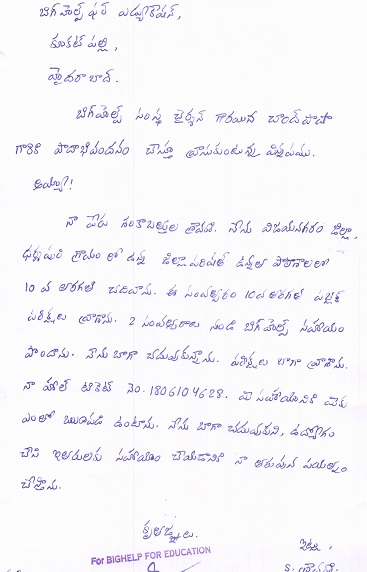 బిగ్ హెల్ప్ ఫర్ ఎడ్యుకేషన్,
కూకట్ పల్లి,
హైదరాబాద్.
బిగ్ హెల్ప్ సంస్థ ఛైర్మన్ గారయిన చాంద్ పాషా
గారికి పాదాభివందనం చేస్తూ వ్రాసుకుంటున్న విన్నపము.
అయ్యా!
నా పేరు శ్రావణి. నేను విజయనగరం జిల్లా,
ధర్మపురి గ్రామం లో ఉన్న జిల్లా పరిషత్ ఉన్నత పాఠశాలలో
10 వ తరగతి చదివాను. ఈ సంవత్సరం 10వ తరగతి పబ్లిక్
పరీక్షలు వ్రాశాను. 2 సంవత్సరాల నుండి బిగ్ హెల్ప్ సహాయం
పొందాను. నేను బాగా చదువుకున్నాను. పరీక్షలు బాగా వ్రాశాను.
నా హాల్ టికెట్ నెం. 1806104628. మీ సహాయానికి మీకు
ఎంతో ఋణపడి ఉంటాను. నేను బాగా చదువుకుని, ఉద్యోగం
చేసి ఇతరులకు సహాయం చేయడానికి నా తరుపున ప్రయత్నం
చేస్తాను.
కృతజ్ఞతలు.
For BIGHELP FOR EDUCATION
ఇట్లు,
S. శ్రావణి.